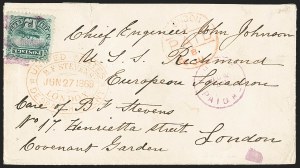 Chief Engineer John Johnson
U. S. S. Richmond
European Squadron
Care of B F Stevens
No 17 Henrietta street
London
Covenant Garden
JUN 27
PAID
POSTAGE